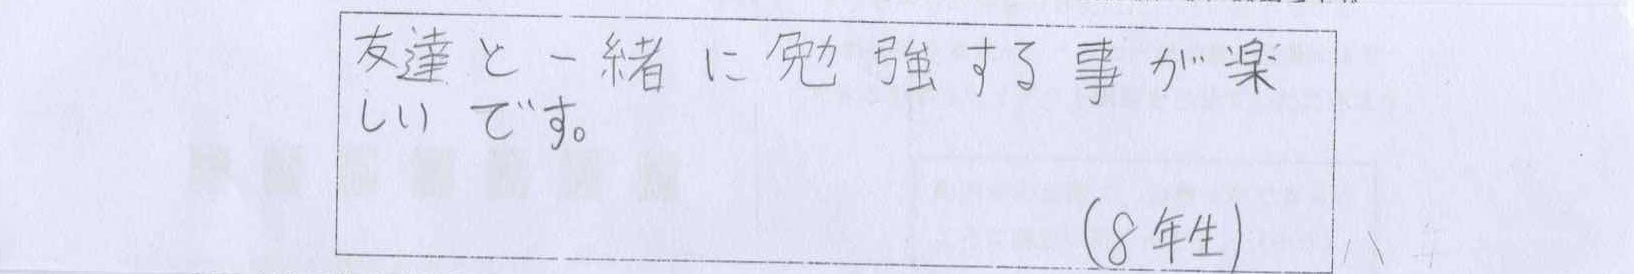 友達と一緒に勉強する事が楽
しいです。
(8年生)